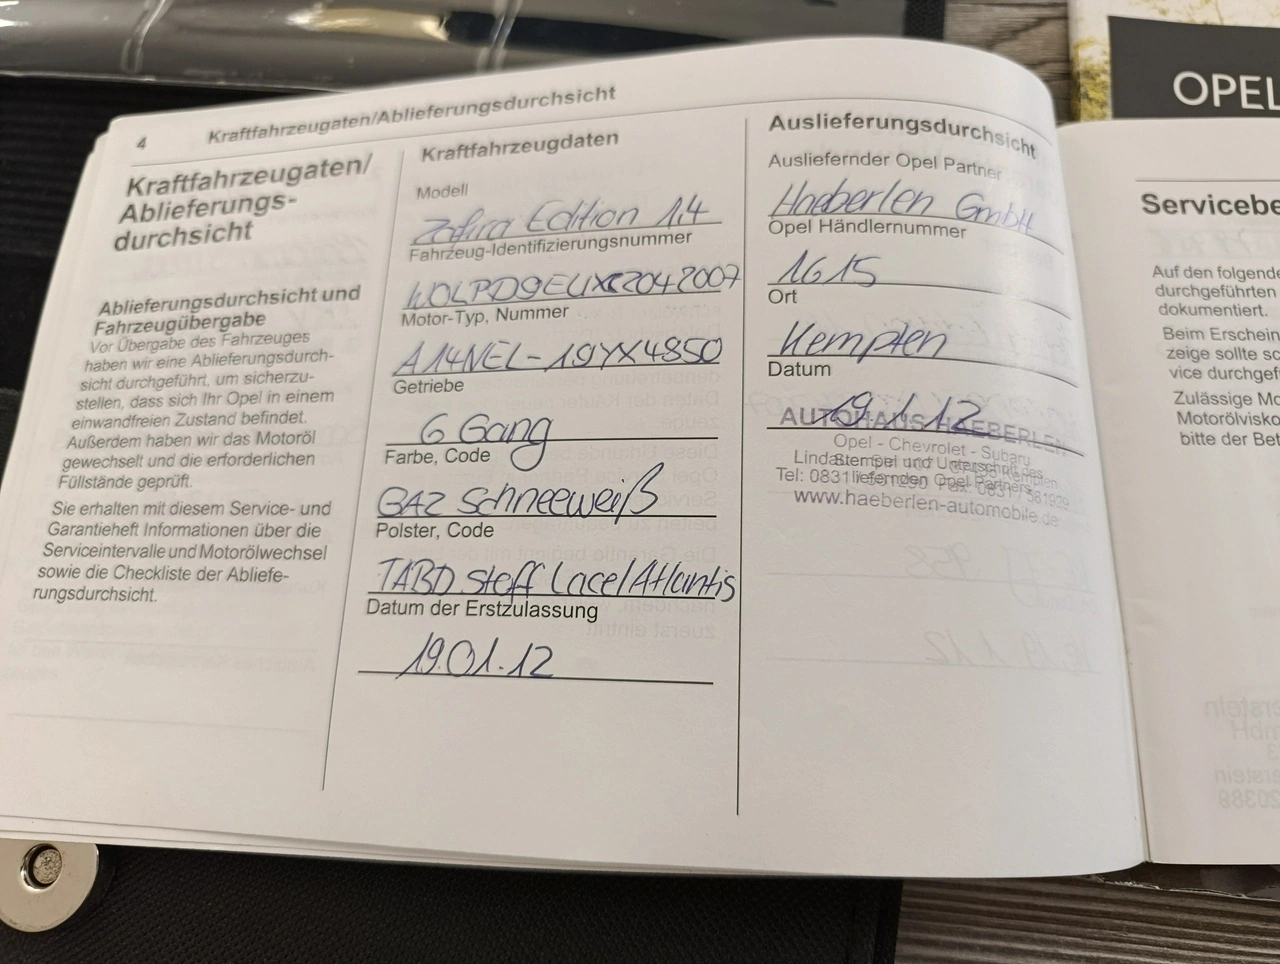 4
Kraftfahrzeugaten/Ablieferungsdurchsicht
Kraftfahrzeugaten/
Ablieferungs-
durchsicht
Ablieferungsdurchsicht und
Fahrzeugübergabe
Vor Übergabe des Fahrzeuges
haben wir eine Ablieferungsdurch-
sicht durchgeführt, um sicherzu-
stellen, dass sich Ihr Opel in einem
einwandfreien Zustand befindet.
Außerdem haben wir das Motoröl
gewechselt und die erforderlichen
Füllstände geprüft.
Sie erhalten mit diesem Service- und
Garantieheft Informationen über die
Serviceintervalle und Motorölwechsel
sowie die Checkliste der Abliefe-
rungsdurchsicht.
Kraftfahrzeugdaten
Modell
Zafira Edition 1.4
Fahrzeug-Identifizierungsnummer
Motor-Typ, Nummer
A14NEL-19YX4850
Getriebe
6 Gang
Farbe, Code
GAZ Schneeweiß
Polster, Code
TABD Stoff Lace/Atlantis
Datum der Erstzulassung
19.01.12
Auslieferungsdurchsicht
Ausliefernder Opel Partner
Haeberlen GmbH
Opel Händlernummer
1615
Ort
Kempten
Datum
19.1.12
AUTOHAUS HAEBERLEN
Opel - Chevrolet - Subaru
Stempel und Unterschrift des
liefernden Opel Partners
Tel: 0831
www.haeberlen-automobile.de
OPEL
Servicebe
Auf den folgende
durchgeführten
dokumentiert.
Beim Erschein
zeige sollte sc
vice durchgef
Zulässige Mo
Motorölvisko
bitte der Bet